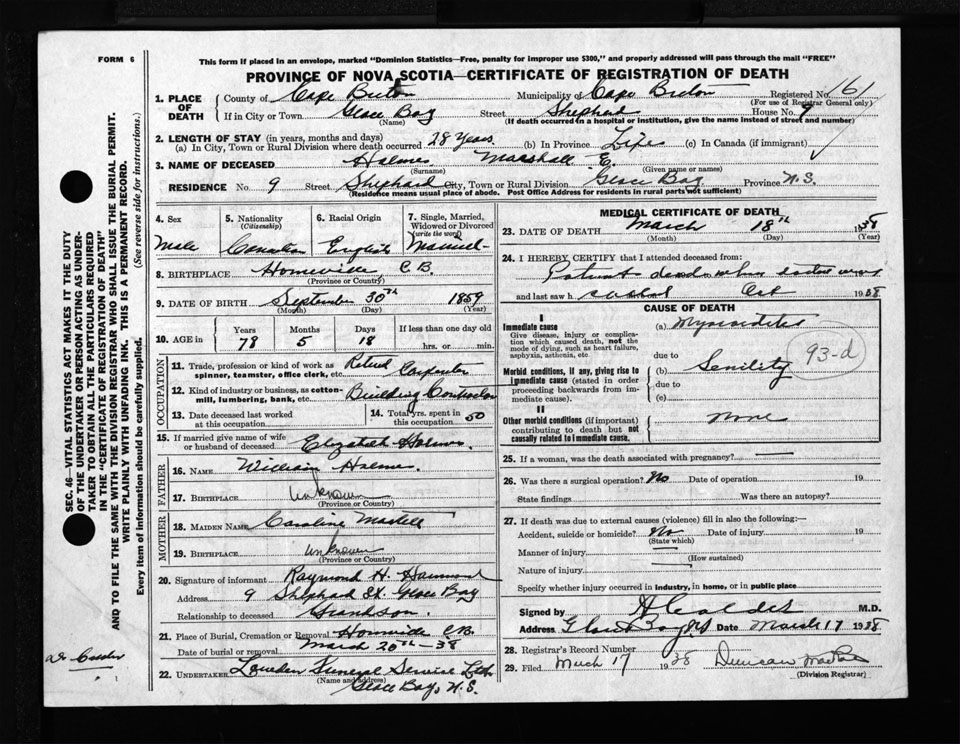 FORM 6
This form if placed in an envelope, marked "Dominion Statistics—Free, penalty for improper use $300," and properly addressed will pass through the mail "FREE"
PROVINCE OF NOVA SCOTIA—CERTIFICATE OF REGISTRATION OF DEATH
SEC. 46—VITAL STATISTICS ACT MAKES IT THE DUTY
OF THE UNDERTAKER OR PERSON ACTING AS UNDER-
TAKER TO OBTAIN ALL THE PARTICULARS REQUIRED
IN THE "CERTIFICATE OF REGISTRATION OF DEATH"
AND TO FILE THE SAME WITH THE DIVISION REGISTRAR WHO SHALL ISSUE THE BURIAL PERMIT.
WRITE PLAINLY WITH UNFADING INK. THIS IS A PERMANENT RECORD.
Every item of information should be carefully supplied. (See reverse side for instructions.)
1. PLACE OF DEATH
County of Cape Breton Municipality of Cape Breton Registered No. 161
(For use of Registrar General only)
If in City or Town Glace Bay Street Shephard House No. 9
(Name) (If death occurred in a hospital or institution, give the name instead of street and number)
2. LENGTH OF STAY (in years, months and days)
(a) In City, Town or Rural Division where death occurred 28 Years (b) In Province Life (c) In Canada (if immigrant)
3. NAME OF DECEASED Holmes Marshall E.
(Surname) (Given name or names)
RESIDENCE No. 9 Street Shephard City, Town or Rural Division Glace Bay Province N.S.
(Residence means usual place of abode. Post Office Address for residents in rural parts not sufficient)
4. Sex
Male
5. Nationality
(Citizenship)
Canadian
6. Racial Origin
English
7. Single, Married,
Widowed or Divorced
(write the word)
Married
8. BIRTHPLACE Homeville, C.B.
(Province or Country)
9. DATE OF BIRTH September 30th 1859
(Month) (Day) (Year)
10. AGE in Years Months Days If less than one day old
78 5 18 hrs. or min.
OCCUPATION
11. Trade, profession or kind of work as
spinner, teamster, office clerk, etc. Retired Carpenter
12. Kind of industry or business, as cotton-
mill, lumbering, bank, etc. Building Contractor
13. Date deceased last worked
at this occupation
14. Total yrs. spent in
this occupation 50
15. If married give name of wife
or husband of deceased Elizabeth Holmes
FATHER
16. NAME William Holmes
17. BIRTHPLACE unknown
(Province or Country)
MOTHER
18. MAIDEN NAME Caroline Martell
19. BIRTHPLACE unknown
(Province or Country)
20. Signature of informant Raymond H.
Address 9 Shephard St. Glace Bay
Relationship to deceased Grandson.
21. Place of Burial, Cremation or Removal Homeville C.B.
Date of burial or removal March 20th—38
22. UNDERTAKER Funeral Service
(Name and address)
Glace Bay, N.S.
MEDICAL CERTIFICATE OF DEATH
23. DATE OF DEATH March 18th 1938
(Month) (Day) (Year)
24. I HEREBY CERTIFY that I attended deceased from:
Patient dead when doctor
and last saw h Oct 1938
CAUSE OF DEATH
I
Immediate cause
Give disease, injury or complica-
tion which caused death, not the
mode of dying, such as heart failure,
asphyxia, asthenia, etc.
(a) Myocarditis
due to
Morbid conditions, if any, giving rise to
immediate cause (stated in order
proceeding backwards from im-
mediate cause).
(b) Senility
93-d
due to
(c)
II
Other morbid conditions (if important)
contributing to death but not
causally related to immediate cause. none
25. If a woman, was the death associated with pregnancy? —
26. Was there a surgical operation? No Date of operation 19
State findings Was there an autopsy?
27. If death was due to external causes (violence) fill in also the following:—
Accident, suicide or homicide? No Date of injury 19
(State which)
Manner of injury —
(How sustained)
Nature of injury —
Specify whether injury occurred in industry, in home, or in public place
Signed by M.D.
Address Glace Bay NS Date March 17 1938
28. Registrar's Record Number
29. Filed March 17 1938 Duncan
(Division Registrar)